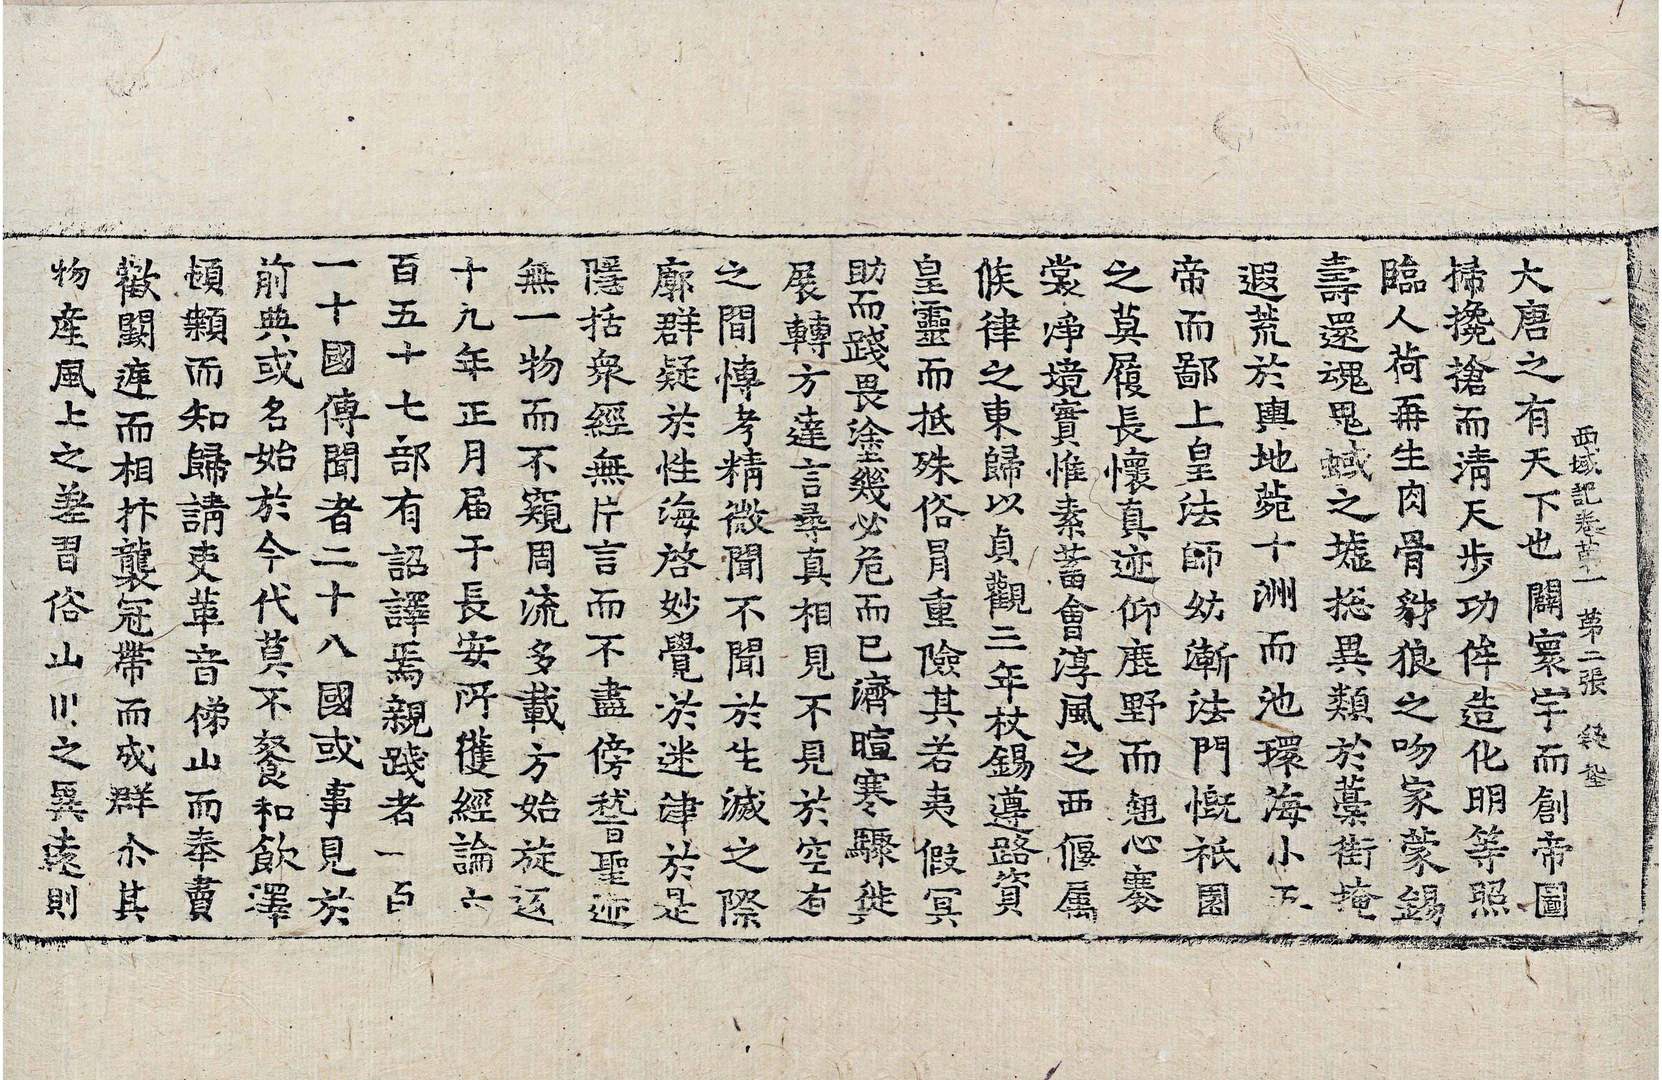 西域記卷第一 第二張
大唐之有天下也闢寰宇而創帝圖
掃攙搶而清天步功侔造化明等照
臨人荷再生肉骨豺狼之吻家蒙錫
壽還魂鬼蜮之墟揔異類於藁街掩
遐荒於輿地菀十洲而池環海小五
帝而鄙上皇法師幼漸法門慨祇園
之莫履長懷真迹仰鹿野而翹心褰
裳淨境實惟素蓄會淳風之西偃属
候律之東歸以貞觀三年杖錫遵路資
皇靈而抵殊俗冒重險其若夷假冥
助而踐畏塗幾必危而已濟暄寒驟徙
展轉方達言尋真相見不見於空有
之間博考精微聞不聞於生滅之際
廓群疑於性海啓妙覺於迷津於是
隱括衆經無片言而不盡傍稽聖迹
無一物而不窺周流多載方始旋返
十九年正月届于長安所獲經論六
百五十七部有詔譯焉親踐者一百
一十國傳聞者二十八國或事見於
前典或名始於今代莫不餐和飲澤
頓顙而知歸請吏革音梯山而奉賮
歡闕庭而相抃襲冠帶而成群尒其
物産風土之差習俗山川之異遠則